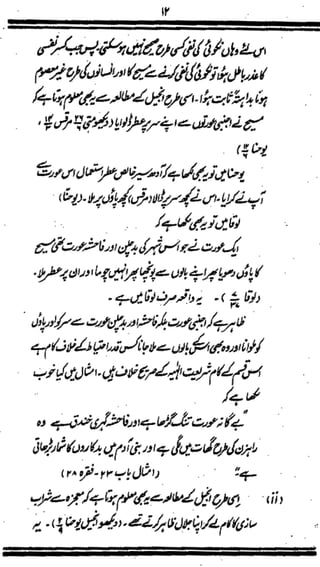 ۱۲
اس لئے وہاں نکوئی کی نفی کسی طرح صحیح نہیں ہو سکتی۔ پس جب کسر نفسی
کا عذر باطل ہوا تو نکوئی کی نفی کرنے سے مسیح کا اور انسانوں کی طرح غیر معصوم
ہونا بداہتہً ثابت ہوا۔ اسی طرح انجیل کے مطالعہ سے یہ بھی معلوم ہوتا ہے کہ
مسیح نے اجنبی عورتوں سے اپنے سر پر عطر ڈلوایا (دیکھو متی ۲۶ مرقس ۱۴
یوحنا
یوحنا میں تو یہ بھی لکھا ہے کہ آدھ سیر خالص عطر استعمال اس عورت سے
آپ نے کرایا۔ اس نے کچھ سر پر ڈالا (مرقس) کچھ پاؤں پر ملا۔ (یوحنا)
لوقا میں تو یہ بھی لکھا ہے کہ
ایک عورت نے جو اس شہر کی بدچلن اور فاحشہ عورت تھی مسیح
کا پاؤں دھویا پھر اپنے بالوں سے پونچھا پھر انہیں چوما اور ان پر عطر ملا۔
(لوقا ) - یہ واقعہ صرف لوقا میں ہے۔
ظاہر ہے کہ اجنبی عورت بلکہ فاحشہ اور بدچلن عورت سے سر کو اور پاؤں
کو ملوانا اور وہ بھی اسکے بالوں سے ملا جانا کس قدر احتیاط کے خلاف کام ہے
اس قسم کے کام شریعت الٰہیہ کے صریح خلاف ہیں۔ امثال میں کیا خوب
لکھا ہے کہ
"بے گانہ عورت تنگ گڑھا ہے اور فاحشہ گہری خندق ہے وہ
راہزن کی طرح گھات میں لگی ہے اور بنی آدم میں بدکاروں کا شمار بڑھاتی
ہے" (امثال باب ۲۳- فقرہ ۲۸)
(ii) اسی طرح انجیل کے مطالعہ سے یہ بھی معلوم ہوتا ہے کہ معجزہ سے شراب
سازی کا کام لے کر اپنا جلال ظاہر کرتے تھے۔ (دیکھو انجیل یوحنا ) - یہ